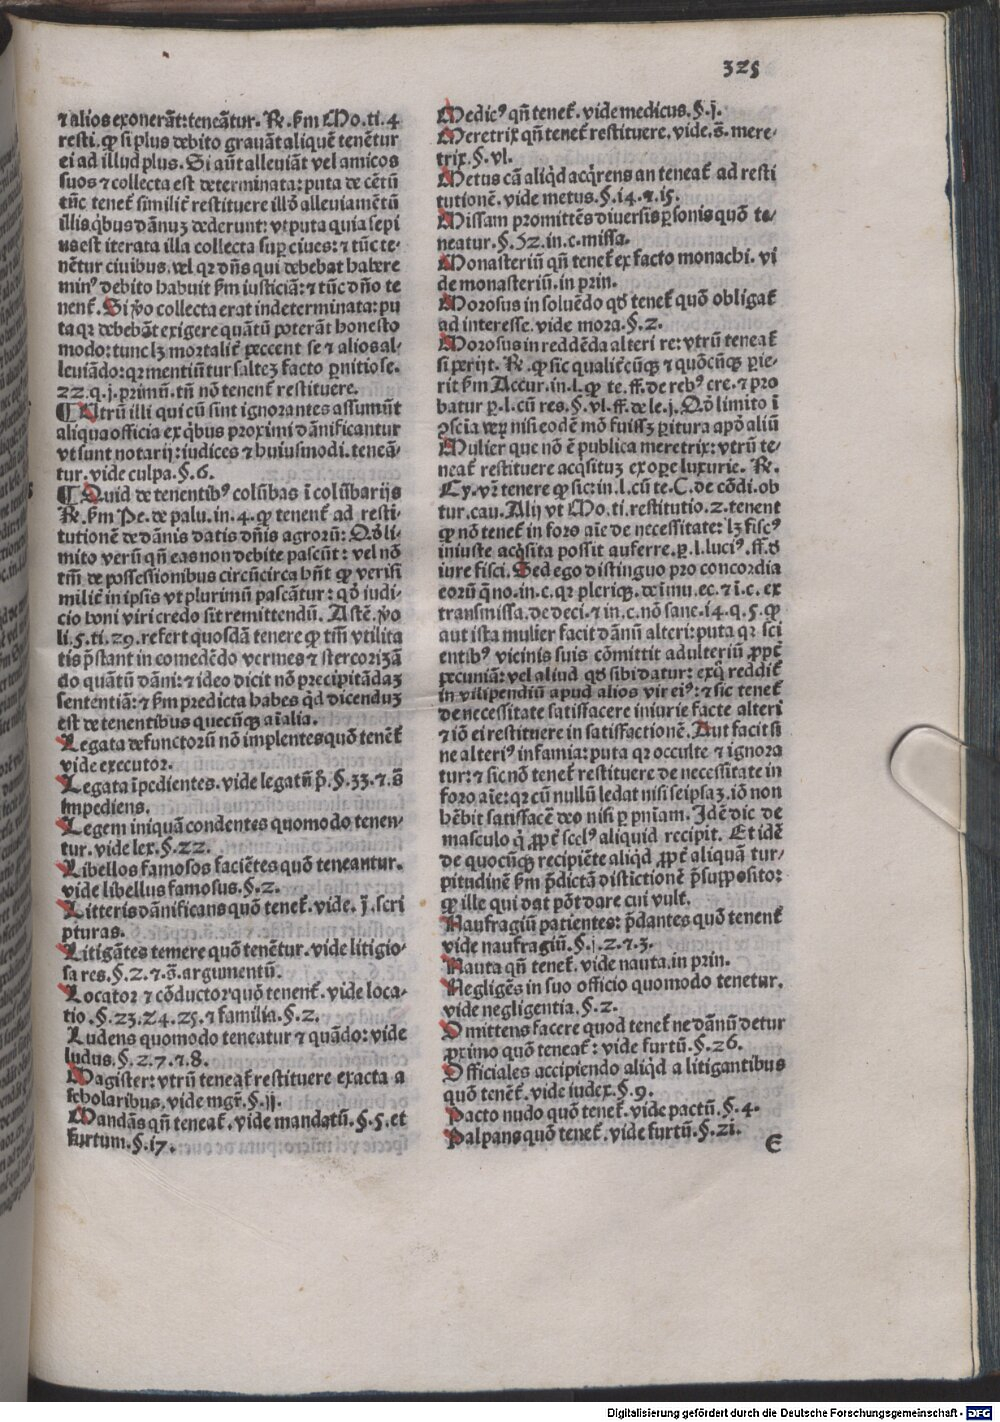 325
⁊ alios exonerãt: teneãtur. Rͤ. ẜm Mo. ti. 4
resti. ꝙ si plus debito grauãt aliquẽ tenẽtur
ei ad illud plus. Si aũt alleuiãt vel amicos
suos ⁊ collecta est determinata: puta de cẽtũ
tũc tenẽt̃ similit̃ restituere illõ alleuiamẽtũ
illis q̇bus dãnuꝫ dederunt: vt puta quia sepi
us est iterata illa collecta suꝑ ciues: ⁊ tũc te-
nẽtur ciuibus. vel qꝛ dñs qui debebat habere
minꝰ debito habuit ẜm iusticiã: ⁊ tũc dño te
nent̃. Si ꝟo collecta erat indeterminata: pu
ta qꝛ debebãt exigere quãtũ poterãt honesto
modo: tunc lꝫ mortalit̃ peccent se ⁊ alios al-
leuiãdo: qꝛ mentiũtur salteꝫ facto ꝑnitiose.
22. q. j. primũ. tñ nõ tenent̃ restituere.
¶ Utrũ illi qui cũ sint ignorantes assumũt
aliqua officia ex q̇bus proximi dãnificantur
vt sunt notarij: iudices ⁊ huiusmodi. teneã-
tur. vide culpa. §. 6.
¶ Quid de tenentibꝰ colũbas ĩ colũbarijs
Rͤ. ẜm Pe. de palu. in. 4. ꝙ tenent̃ ad resti-
tutionẽ de dãnis datis dñis agrorũ: Qď li-
mito verũ qñ eas non debite pascũt: vel nõ
tm̃ de possessionibus circũcirca hñt ꝙ verisi
milit̃ in ipsis vt plurimũ pascãtur: qď iudi-
cio boni viri credo sit remittendũ. Astẽ. ꝟo
li. 5. ti. 29. refert quosdã tenere ꝙ tm̃ vtilita
tis p̃stant in comedẽdo vermes ⁊ stercorizã
do quãtũ dãni: ⁊ ideo dicit nõ precipitãdaꝫ
sententiã: ⁊ ẜm predicta habes qď dicenduꝫ
est de tenentibus quecũqꝫ aĩalia.
Legata defunctorũ nõ implentes quõ tenẽt̃
vide executor.
Legata ĩpedientes. vide legatũ p̃. §. 33. ⁊. s̃
impediens.
Legem iniquã condentes quomodo tenen-
tur. vide lex. §. 22.
Libellos famosos faciẽtes quõ teneantur.
vide libellus famosus. §. 2.
Litteris dãnificans quõ tenet̃. vide. j̃. scri
pturas.
Litigãtes temere quõ tenẽtur. vide litigio-
sa res. §. 2. ⁊. s̃. argumentũ.
Locator ⁊ cõductor quõ tenent̃. vide loca-
tio. §. 23. 24. 25. ⁊ familia. §. 2.
Ludens quomodo teneatur ⁊ quãdo: vide
ludus. §. 2. 7. ⁊. 8.
Magister: vtrũ teneat̃ restituere exacta a
scholaribus. vide mgr̃. §. ij.
Mandãs qñ teneat̃. vide mandatũ. §. 5. et
furtum. §. 17.
Medicꝰ qñ tenet̃. vide medicus. §. j.
Meretrix qñ tenet̃ restituere. vide. s̃. mere-
trix. §. vl.
Metus cã aliq̇d acq̇rens an teneat̃ ad resti
tutionẽ. vide metus. §. 14. ⁊. 15.
Missam promittẽs diuersis ꝑsonis quõ te-
neatur. §. 52. in. c. missa.
Monasteriũ qñ tenet̃ ex facto monachi. vi
de monasteriũ. in prin.
Morosus in soluẽdo qď tenet̃ quõ obligat̃
ad interesse. vide mora. §. 2.
Morosus in reddẽda alteri re: vtrũ teneat̃
si perijt. Rͤ. ꝙ sic qualit̃cũqꝫ ⁊ quõcũqꝫ ꝑie-
rit ẜm Accur. in. l. ꝙ te. ff. de rebꝰ cre. ⁊ pro
batur ꝑ. l. cũ res. §. vl. ff. de le. j. Qď limito ĩ
ꝯscĩa veꝝ nisi eodẽ mõ fuissꝫ ꝑitura apď aliũ
Mulier que nõ ẽ publica meretrix: vtrũ te-
neat̃ restituere acq̇situꝫ ex oꝑe luxurie. Rͤ.
Cy. vr̃ tenere ꝙ sic: in. l. cũ te. C. de cõdi. ob
tur. cau. Alij vt Mo. ti. restitutio. 2. tenent
ꝙ nõ tenet̃ in foro aĩe de necessitate: lꝫ fiscꝰ
iniuste acq̇sita possit auferre. ꝑ. l. luciꝰ. ff. ď
iure fisci. Sed ego distinguo pro concordia
eorũ q̇ no. in. c. qꝛ pleriqꝫ. de imu. ec. ⁊ ĩ. c. ex
transmissa. de deci. ⁊ in. c. nõ sane. 14. q. 5. ꝙ
aut ista mulier facit dãnũ alteri: puta qꝛ sci
entibꝰ vicinis suis cõmittit adulteriũ ꝓpt̃
pecuniã: vel aliud qď sibi datur: ex q̃ reddit̃
in vilipendiũ apud alios vir eiꝰ: ⁊ sic tenet̃
de necessitate satisfacere iniurie facte alteri
⁊ iõ ei restituere in satisfactionẽ. Aut facit si
ne alteriꝰ infamia: puta qꝛ occulte ⁊ ignora
tur: ⁊ sic nõ tenet̃ restituere de necessitate in
foro aĩe: qꝛ cũ nullũ ledat nisi seipsaꝫ. iõ non
hẽbit satisfacẽ deo nisi ꝑ pniam. Idẽ dic de
masculo q̇ ꝓpt̃ scelꝰ aliquid recipit. Et idẽ
de quocũqꝫ recipiẽte aliq̇d ꝓpt̃ aliquã tur-
pitudinẽ ẜm p̃dictã distictionẽ p̃supposito:
ꝙ ille qui dat põt dare cui vult.
Naufragiũ patientes: p̃dantes quõ tenent̃
vide naufragiũ. §. j. 2. ⁊. 3.
Nauta qñ tenet̃. vide nauta. in prin.
Negligẽs in suo officio quomodo tenetur.
vide negligentia. §. 2.
Omittens facere quod tenet̃ ne dãnũ detur
proximo quõ teneat̃: vide furtũ. §. 26.
Officiales accipiendo aliq̇d a litigantibus
quõ tenẽt̃. vide iudex. §. 9.
Pacto nudo quõ tenet̃. vide pactũ. §. 4.
Palpans quõ tenet̃. vide furtũ. §. 21.
E
Digitalisierung gefördert durch die Deutsche Forschungsgemeinschaft - DFG